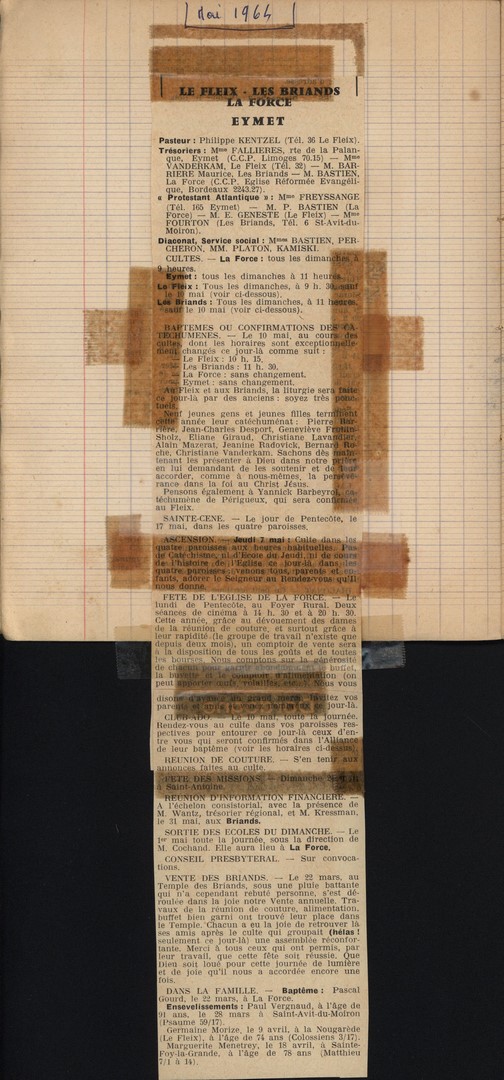 Mai 1964
LE FLEIX - LES BRIANDS
LA FORCE
EYMET
Pasteur : Philippe KENTZEL (Tél. 36 Le Fleix).
Trésoriers : Mme FALLIERES, rte de la Palan-
que, Eymet (C.C.P. Limoges 70.15) — Mme
VANDERKAM, Le Fleix (Tél. 32) — M. BAR-
RIERE Maurice, Les Briands — M. BASTIEN,
La Force (C.C.P. Eglise Réformée Evangéli-
que, Bordeaux 2243.27).
« Protestant Atlantique » : Mme FREYSSANGE
(Tél. 165 Eymet) — M. P. BASTIEN (La
Force) — M. E. GENESTE (Le Fleix) — Mme
FOURTON (Les Briands, Tél. 6 St-Avit-du-
Moiron).
Diaconat, Service social : Mmes BASTIEN, PER-
CHERON, MM. PLATON, KAMISKI.
CULTES. — La Force : tous les dimanches à
9 heures.
Eymet : tous les dimanches à 11 heures.
Le Fleix : Tous les dimanches, à 9 h. 30, sauf
le 10 mai (voir ci-dessous).
Les Briands : Tous les dimanches, à 11 heures,
sauf le 10 mai (voir ci-dessous).
BAPTEMES OU CONFIRMATIONS DES CA-
TECHUMENES. — Le 10 mai, au cours des
cultes, dont les horaires sont exceptionnelle-
ment changés ce jour-là comme suit :
— Le Fleix : 10 h. 15.
— Les Briands : 11 h. 30.
— La Force : sans changement.
— Eymet : sans changement.
Au Fleix et aux Briands, la liturgie sera faite
ce jour-là par des anciens : soyez très ponc-
tuels.
Neuf jeunes gens et jeunes filles terminent
cette année leur catéchuménat : Pierre Bar-
rière, Jean-Charles Desport, Geneviève
Sholz, Eliane Giraud, Christiane Lavandier,
Alain Mazerat, Jeanine Radovick, Bernard Ro-
che, Christiane Vanderkam. Sachons dès main-
tenant les présenter à Dieu dans notre prière
en lui demandant de les soutenir et de leur
accorder, comme à nous-mêmes, la persévé-
rance dans la foi au Christ Jésus.
Pensons également à Yannick Barbeyrol, ca-
téchumène de Périgueux, qui sera confirmée
au Fleix.
SAINTE-CENE. — Le jour de Pentecôte, le
17 mai, dans les quatre paroisses.
ASCENSION. — Jeudi 7 mai : Culte dans les
quatre paroisses aux heures habituelles. Pas
de Catéchisme, ni d'Ecole du Jeudi, ni de cours
de l'histoire de l'Eglise ce jour-là, dans les
quatre paroisses : venons tous, parents et en-
fants, adorer le Seigneur au Rendez-vous qu'Il
nous donne.
FETE DE L'EGLISE DE LA FORCE. — Le
lundi de Pentecôte, au Foyer Rural. Deux
séances de cinéma à 14 h. 30 et à 20 h. 30.
Cette année, grâce au dévouement des dames
de la réunion de couture, et surtout grâce à
leur rapidité (le groupe de travail n'existe que
depuis deux mois), un comptoir de vente sera
à la disposition de tous les goûts et de toutes
les bourses. Nous comptons sur la générosité
de chacun pour garnir abondamment le buffet,
la buvette et le comptoir d'alimentation (on
peut apporter œufs, volailles, etc.). Nous vous
disons d'avance un grand merci. Invitez vos
jour-là.
CLUB-ADO. — Le 10 mai, toute la journée.
Rendez-vous au culte dans vos paroisses res-
pectives pour entourer ce jour-là ceux d'en-
tre vous qui seront confirmés dans l'Alliance
de leur baptême (voir les horaires ci-dessus).
REUNION DE COUTURE. — S'en tenir aux
annonces faites au culte.
FETE DES MISSIONS. — Dimanche
à Saint-Antoine.
REUNION D'INFORMATION FINANCIERE. —
A l'échelon consistorial, avec la présence de
M. Wantz, trésorier régional, et M. Kressman,
le 31 mai, aux Briands.
SORTIE DES ECOLES DU DIMANCHE. — Le
1er mai toute la journée, sous la direction de
M. Cochand. Elle aura lieu à La Force.
CONSEIL PRESBYTERAL. — Sur convoca-
tions.
VENTE DES BRIANDS. — Le 22 mars, au
Temple des Briands, sous une pluie battante
qui n'a cependant rebuté personne, s'est dé-
roulée dans la joie notre Vente annuelle. Tra-
vaux de la réunion de couture, alimentation,
buffet bien garni ont trouvé leur place dans
le Temple. Chacun a eu la joie de retrouver là
ses amis après le culte qui groupait (hélas !
seulement ce jour-là) une assemblée réconfor-
tante. Merci à tous ceux qui ont permis, par
leur travail, que cette fête soit réussie. Que
Dieu soit loué pour cette journée de lumière
et de joie qu'il nous a accordée encore une
fois.
DANS LA FAMILLE. — Baptême : Pascal
Gourd, le 22 mars, à La Force.
Ensevelissements : Paul Vergnaud, à l'âge de
91 ans, le 28 mars à Saint-Avit-du-Moiron
(Psaume 59/17).
Germaine Morize, le 9 avril, à la Nougarède
(Le Fleix), à l'âge de 74 ans (Colossiens 3/17).
Marguerite Menetrey, le 18 avril, à Sainte-
Foy-la-Grande, à l'âge de 78 ans (Matthieu
7/1 à 14).